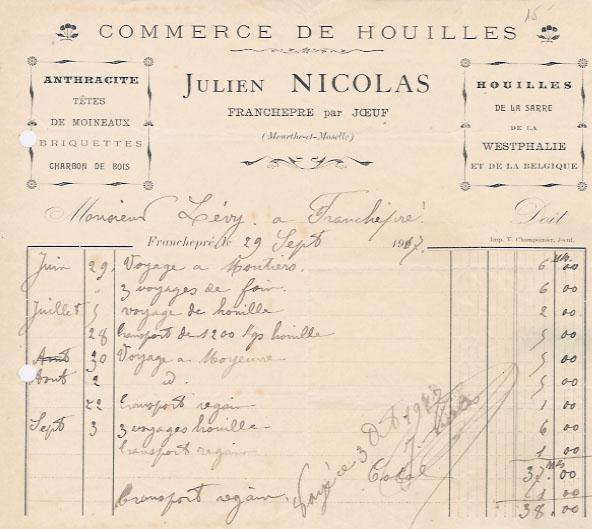 15
COMMERCE DE HOUILLES
ANTHRACITE
TÊTES
DE MOINEAUX
BRIQUETTES
CHARBON DE BOIS
JULIEN NICOLAS
FRANCHEPRE par JŒUF
(Meurthe-et-Moselle)
HOUILLES
DE LA SARRE
DE LA
WESTPHALIE
ET DE LA BELGIQUE
Monsieur Lévy. a Franchépré. Doit
Franchepré, le 29 Sept 1917.
Imp. T. Championnier, Jœuf.
Juin 29. Voyage a Moutiers. 6 Mks. 00
" 3 voyages de foin. 6 00
Juillet 5 voyage de houille 2 00
28 transport de 1200 kgs houille 5 00
Aout 30 Voyage a Moyeuvre 5 00
Aout 2 id. 5 00
22 transport regain 1 00
Sept 3 3 voyages houille 6 00
transport regain 1 00
Total 37. Mks 00
transport regain. 1 00
38. 00
Payé ce 3 Oct 1917
J. Nicolas